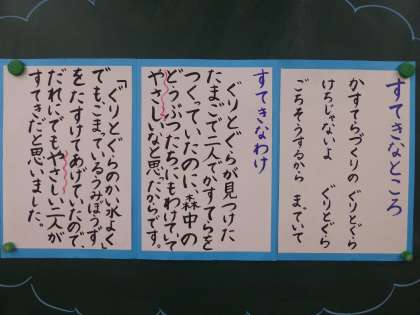 すてきなところ
かすてらづくりの ぐりとぐら
けちじゃないよ ぐりとぐら
ごちそうするから まっていて
すてきなわけ
ぐりとぐらが見つけた
たまごで二人でかすてらを
つくっていたのに、森中の
どうぶつたちにもわけていて
やさしいなと思ったからです。
「ぐりとぐらのかい水よく」
でも、こまっているうみぼうず
をたすけてあげていたので、
だれにでもやさしい二人が
すてきだと思いました。